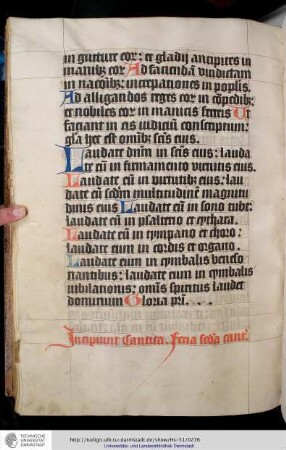 in gutture eor: et gladij ancipites in
manibz eor Ad faciendā vindictam
in nacōibz: increpationes in poplis.
Ad alligandos reges eor in cōpedibz:
et nobiles eor in manicis ferreis Ut
faciant in eis iudiciū conscriptum:
gla hec est omībz scīs eius.
Laudate dnm in scīs eius: lauda
te eū in firmamento virtutis eius.
Laudate eū in virtutibz eius: lau
date eū scdm multitudinē magnitu
dinis eius Laudate eū in sono tube:
laudate eū in psalterio et cythara.
Laudate eū in tympano et choro:
laudate eum in cordis et organo.
Laudate eum in cymbalis beneso
nantibus: laudate eum in cymbalis
iubilationis: omīs spiritus laudet
dominum Gloria pri . . .
Incipiunt Cantica. Feria scda cant'.
TECHNISCHE
UNIVERSITÄT
DARMSTADT
http://tudigit.ulb.tu-darmstadt.de/show/Hs-51/0276
Universitäts- und Landesbibliothek Darmstadt